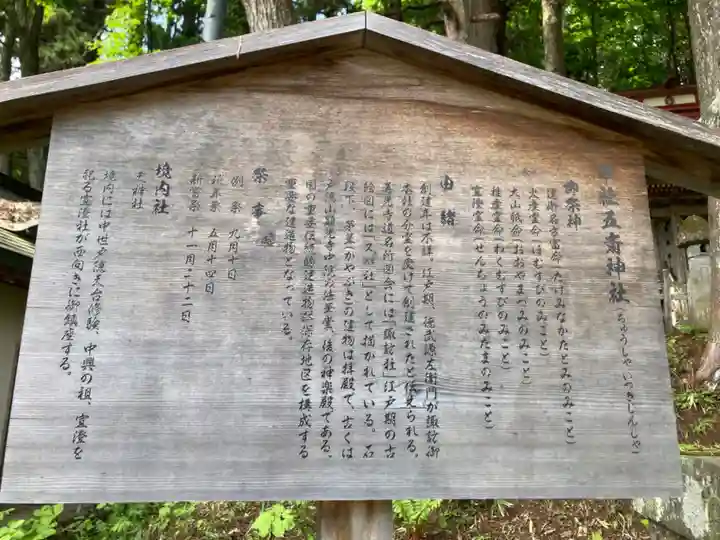 中社五斎神社(ちゅうしゃいつきじんしゃ)
御祭神
建御名方富命(たけみなかたとみのみこと)
火産霊命(ほむすびのみこと)
大山祇命(おおやまづみのみこと)
稚産霊命(わくむすびのみこと)
宣澄霊命(せんちょうのみたまのみこと)
由緒
創建年は不詳。江戸期、徳武源左衛門が諏訪御
本社の分霊を受けて創建されたと伝えられる。
善光寺道名所図会には「諏訪社」江戸期の古
絵図には「ス社」として描かれている。石
段下、茅葺(かやぶき)の建物は拝殿で、古くは
戸隠山顕光寺中院の法華堂、後の神楽殿である。
国の重要伝統的建造物群保存地区を構成する
重要な建造物となっている。
祭事
例祭 九月十日
祈年祭 五月十四日
新嘗祭 十一月二十二日
境内社
天神社
境内には中世戸隠天台修験、中興の祖、宣澄を
祀る宣澄社が西向きに御鎮座する。